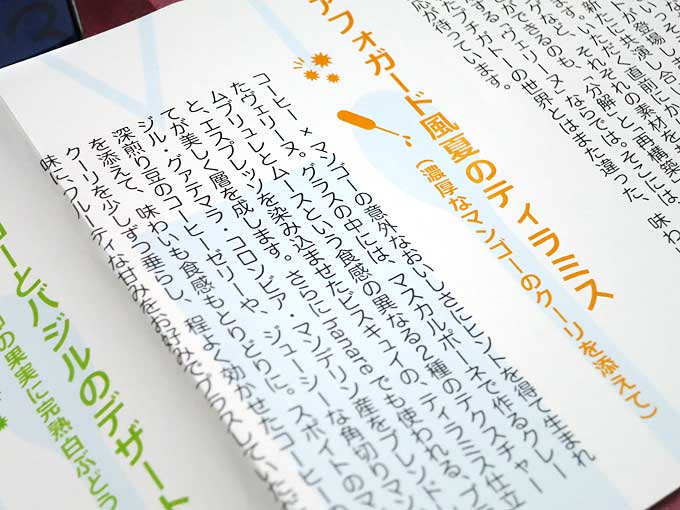 ができるのも、「分解」と「再構築
する「ヴェリーヌ」ならでは。そこには、
たプチガトーの世界とはまた違った、
応が待っています。
アフォガード風夏のティラミス
(濃厚なマンゴーのクーリを添えて)
コーヒー×マンゴーの意外なおいしさにヒントを得て生まれ
たヴェリーヌ。グラスの中には、マスカルポーネで作るクレー
ムブリュレとムースという食感の異なる2種のテクスチャー
と、エスプレッソを染み込ませたビスキュイの、ティラミス仕立
てが美しく層を成します。さらにでも使われる、ブ
ジル・グァテマラ・コロンビア・マンデリン産をブレンド
深煎り豆のコーヒーゼリーや、ジューシーな角切りマ
を添えて、味わいも食感もとりどりに。スポイトのマ
クーリを少しずつ垂らし、程よく効かせたコーヒーの
味に、フルーティな甘みをお好みでプラスしていただ
ゴーとバジルのデザート
の果実に完熟白ぶどう